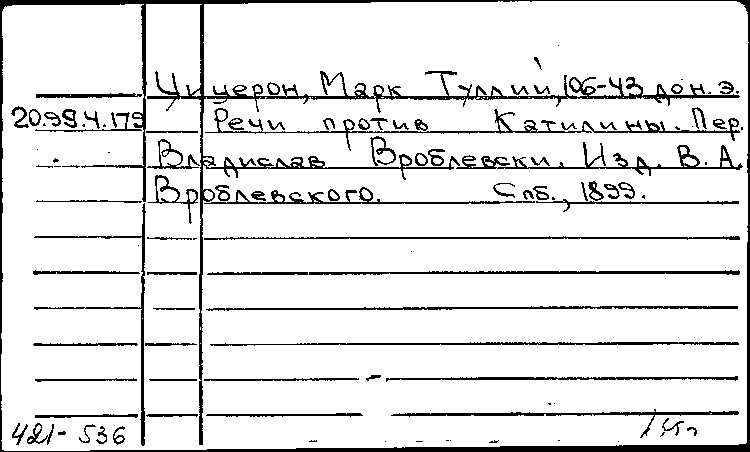 Цицерон, Марк Туллий, 106-43 до н. э.
20.99.4.179 Речи против Катилины. Пер.
Владислав Вроблевски. Изд. В. А.
Вроблевского. Спб., 1899.
421-536